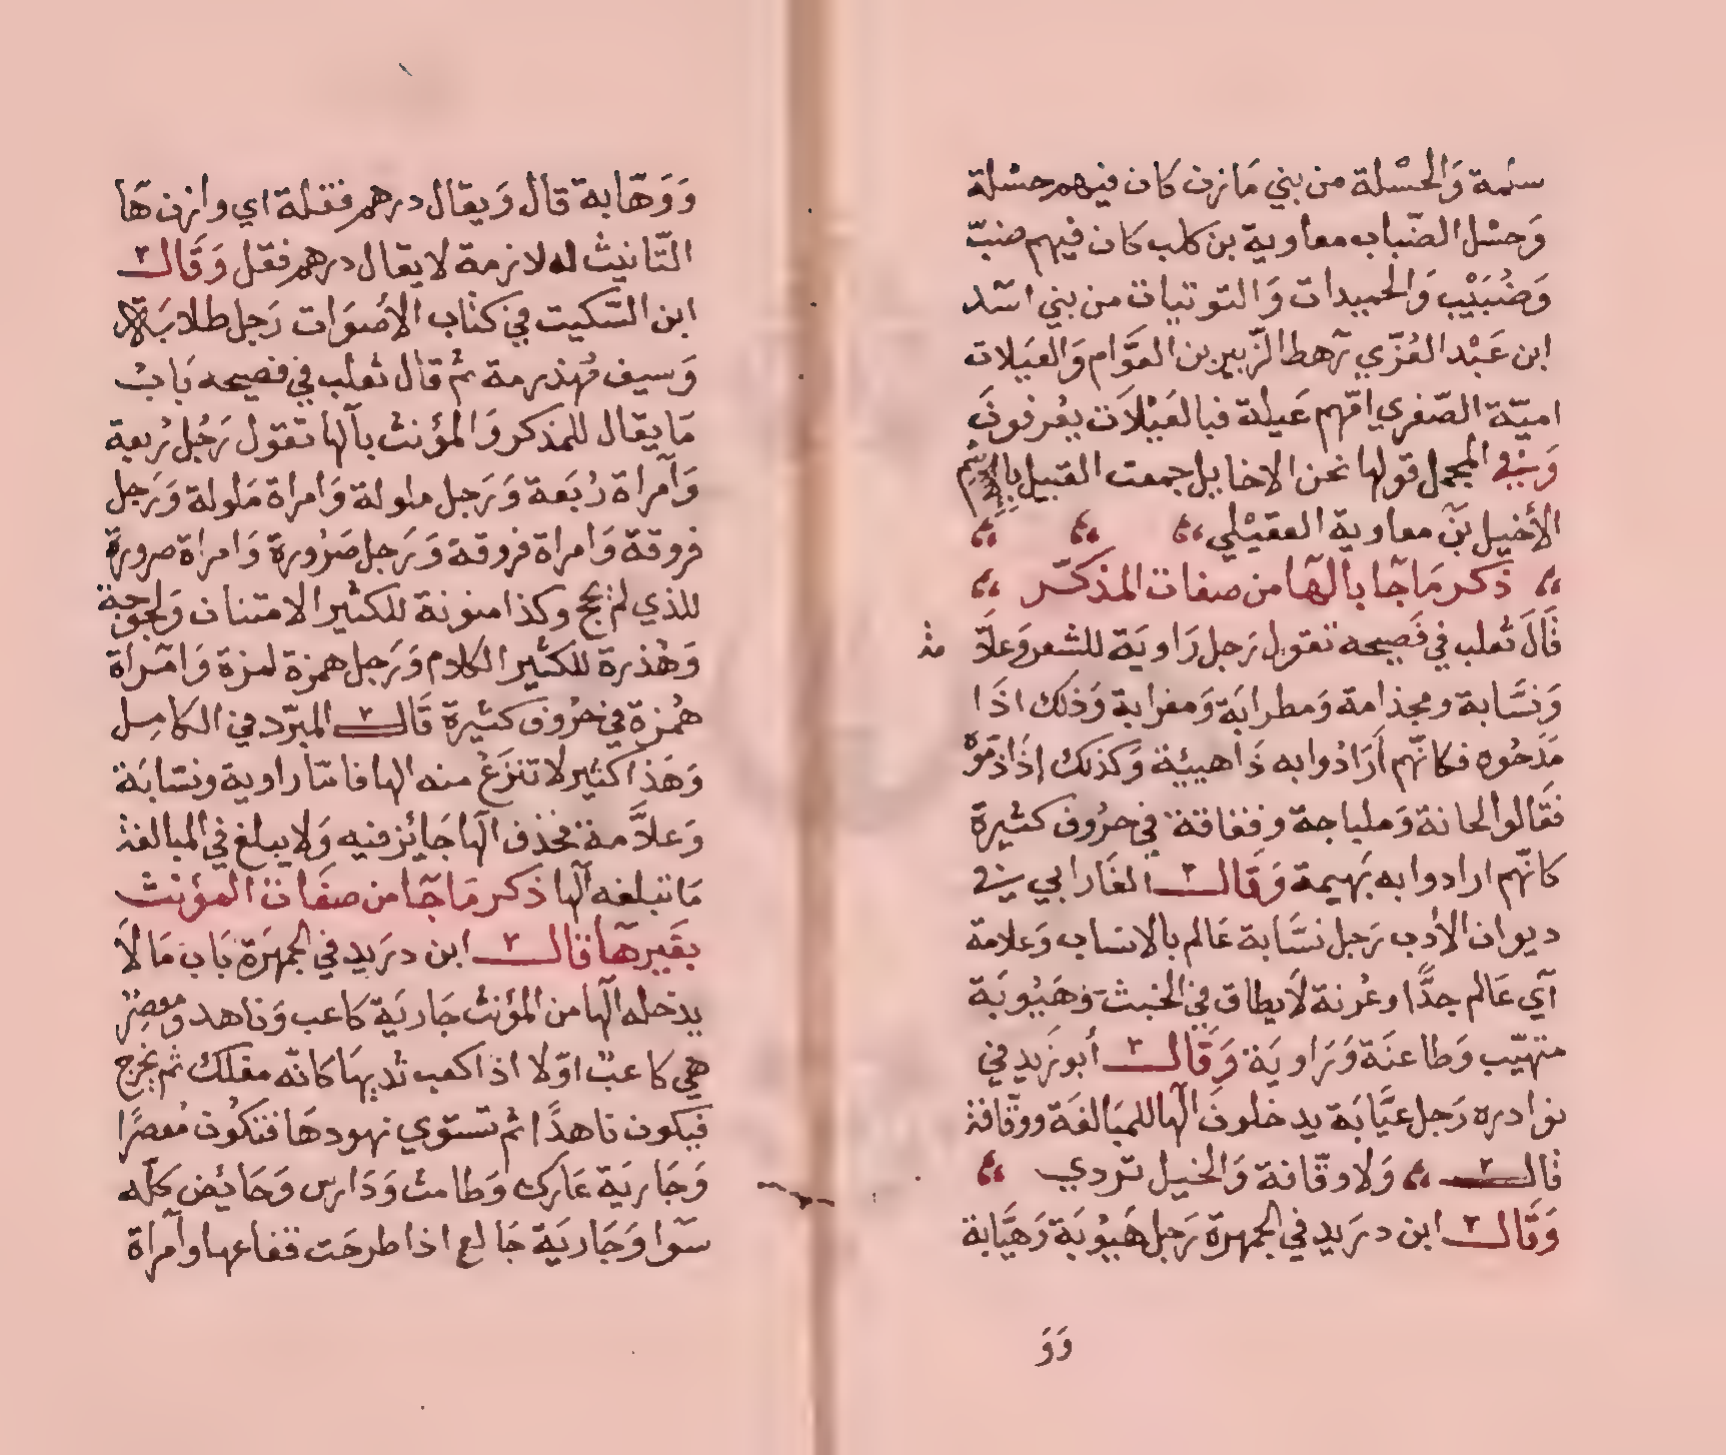 سلمة وَالحسْلة من بني مَازن كان فيهم حسْلة
وَحسْل الضّباب معاوية بن كلب كان فيهم ضبّ
وَضُبَيْب وَالحميدات وَالتويتات من بني اسد
ابن عَبْد العُزّي رهط الزّبير بن العوَّام وَالعبَلات
اميّة الصّغري امّهم عَبلة فبالعَبْلاَت يعُرفونَ
وَفي المجمل قولها نحن الاخايل جمعت القبيل باسم
الأخيل بن معاوية العقيْلي
ذكر مَا جآ بالهآ من صفات المذكّر
قَالَ ثعلب في فَصيحه تقول رَجل رَاويَة للشعر وَعلاّ مة
وَنسَّابة ومجذامة وَمطرابَة وَمعزابة وَذلك اذَا
مَدَحُوه فكانّهم أرَادُوا به دَاهيية وَكذلك إذَا ذمّوهُ
فقَالوا لحانة وَهلباجة وفقاقة في حرُوف كثيرةَ
كانّهم ارادوا به بَهيمة وَقَال الفَارابي في
ديوان الأدب رَجل نسَّابة عَالم بالانساب وَعلامة
آي عَالم جدًّا وعُرنة لاَ يطاق في الخبث وَهَيُوبَة
متهيّب وَطاعنَة وَرَاويَة وَقَال أبو زَيد في
نوادره رَجل عيَّابَة يدخلونَ الهآ للمبَالغَة ووقّافة
قال وَلا وقّافة وَالخيل تردي
وَقَال ابن دريد في الجمهرة رَجل هَيُوبَة وَهيَّابة
وَوَ
وَوَهّابة قال وَيقال درهم قفلة اي وازن هَا
التّانيث له لازمة لا يقال درهم قفل وَقَال
ابن السّكيت في كتاب الأصوَات رَجل طلابَة
وَسيف مُهذرمة ثم قال ثعلب في فصيحه بَاب
مَا يقال للمذكر وَالمؤنث بآلها تقول رَجُل رُبعة
وَآمراة رُبَعة وَرَجل ملولة وَامراة مَلولة وَرَجل
فروقة وَامراة فروقة وَرَجل صَرُورة وَامراة صرورة
للذي لم يحج وكذا منونة للكثير الامتنان وَلجوجة
وَهُذرة للكثير الكلام وَرَجل همزة لمزة وَامْراة
همُزة في حرُوف كثيرة قَال المبرّد في الكامِل
وَهَذا كثير لا تنزَعُ منه الها فامّا راوية ونسّابَة
وَعلاَّمة فحذف الهآ جَايز فيه وَلا يبلغ في المبالغة
مَا تبلغه آلها ذكر مَا جآ من صفَات المؤنث
بغَير هآ قال ابن دريد في الجمهَرة بَاب مَا لاَ
يدخله الهآ من المؤنث جَاريَة كاعب وَناهد ومعصر
هي كاعبٌ اوّلا اذا كعب ثديهَا كانّه مفلك ثم يخرج
فيكون ناهدًا ثم تستوي نهودهَا فتكُون مُعصرًا
وَجَاريَة عَارك وَطامث وَدَارس وَحَايض كلّه
سوآ وَجَاريَة جَالع اذا طرحَت قناعها وآمراة